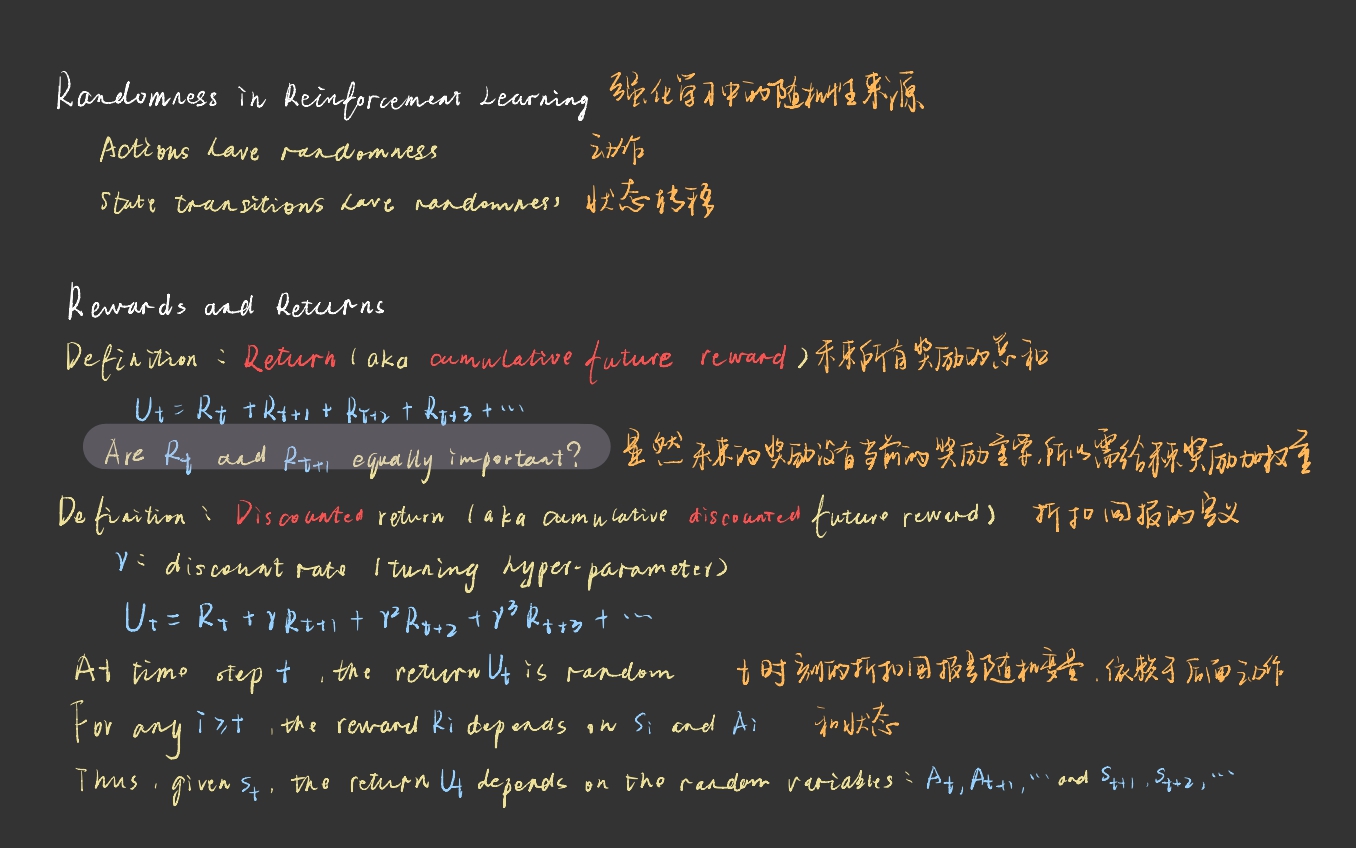 Randomness in Reinforcement Learning 强化学习中的随机性来源
Actions have randomness 动作
State transitions have randomness 状态转移
Rewards and Returns
Definition : Return (aka cumulative future reward) 未来所有奖励的总和
Ut = Rt + Rt+1 + Rt+2 + Rt+3 + ...
Are Rt and Rt+1 equally important? 显然未来的奖励没有当前的奖励重要,所以需给未来奖励加权重
Definition : Discounted return (aka cumulative discounted future reward) 折扣回报的定义
γ : discount rate (tuning hyper-parameter)
Ut = Rt + γRt+1 + γ²Rt+2 + γ³Rt+3 + ...
At time step t , the return Ut is random t时刻的折扣回报是随机变量,依赖于后面动作
For any i≥t , the reward Ri depends on Si and Ai 和状态
Thus, given st, the return Ut depends on the random variables : At, At+1, ... and St+1, St+2, ...